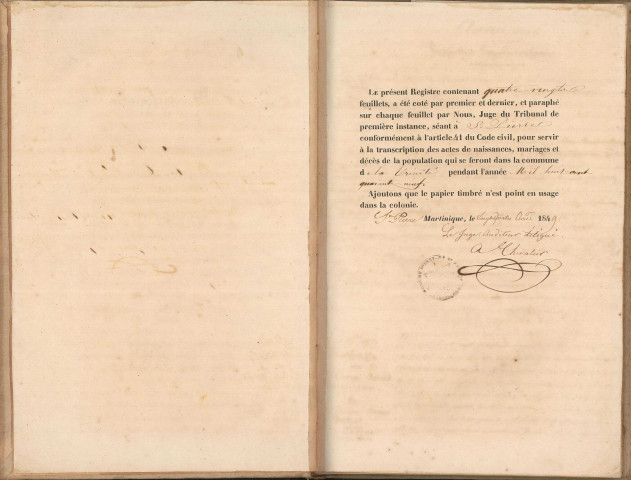 Le présent Registre contenant quatre vingts
feuillets, a été coté par premier et dernier, et paraphé
sur chaque feuillet par Nous, Juge du Tribunal de
première instance, séant à St Pierre
conformément à l'article 41 du Code civil, pour servir
à la transcription des actes de naissances, mariages et
décès de la population qui se feront dans la commune
de la Trinité pendant l'année Mil huit cent
quarante neuf.
Ajoutons que le papier timbré n'est point en usage
dans la colonie.
St Pierre Martinique, le 1849
Le Juge Auditeur délégué